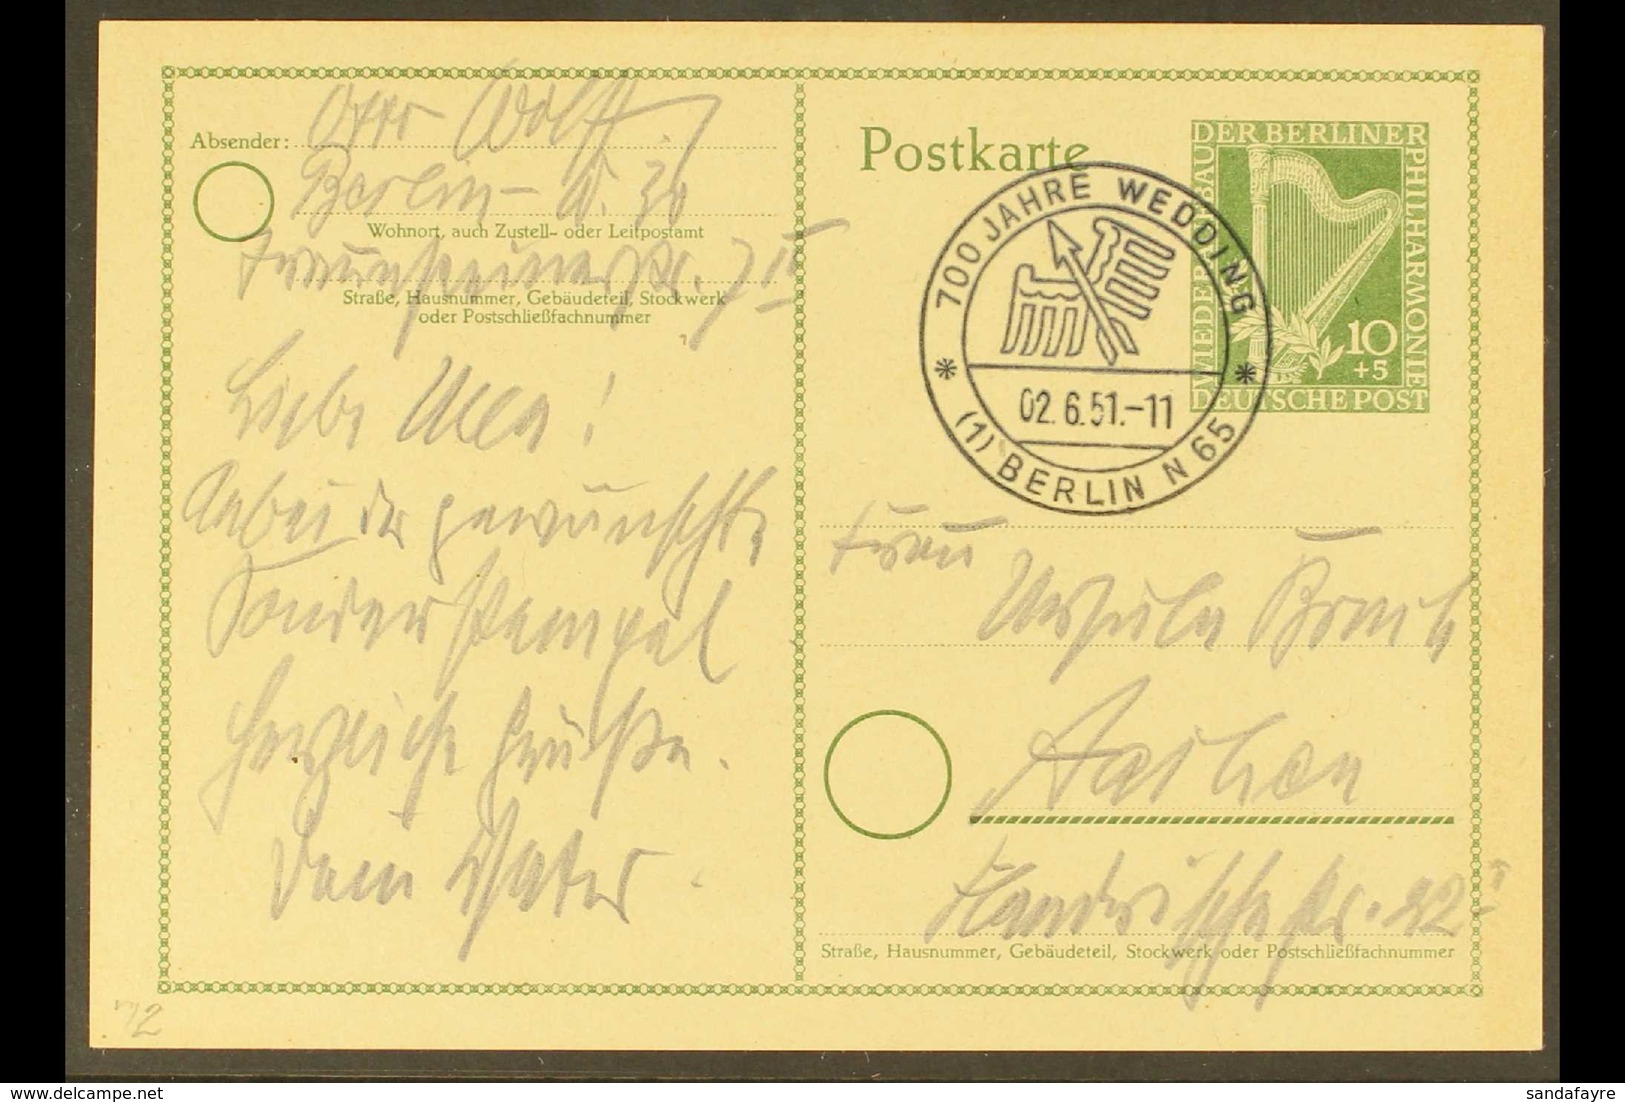 Absender: Otto Wolff
Berlin - W. 30
Wohnort, auch Zustell- oder Leitpostamt
Straße, Hausnummer, Gebäudeteil, Stockwerk
oder Postschließfachnummer
Liebe Ulla!
Anbei der gewünschte
Sonderstempel
Herzliche Grüße.
Dein Vater.
Postkarte
WIEDERAUFBAU DER BERLINER PHILHARMONIE
10
+5
DEUTSCHE POST
700 JAHRE WEDDING
02.6.51.-11
(1) BERLIN N 65
Frau
Ursula
Aachen
22 II
Straße, Hausnummer, Gebäudeteil, Stockwerk oder Postschließfachnummer
delcampe.net
sandafayre